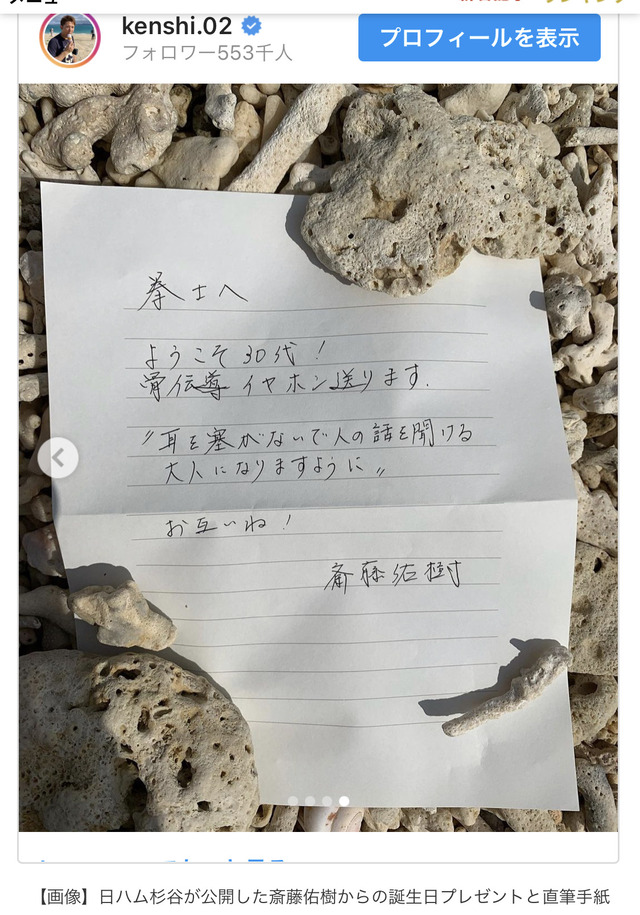 kenshi.02
フォロワー553千人
プロフィールを表示
拳士へ
ようこそ30代!
骨伝導イヤホン送ります.
"耳を塞がないで人の話を聞ける
大人になりますように"
お互いね!
斎藤佑樹
【画像】日ハム杉谷が公開した斎藤佑樹からの誕生日プレゼントと直筆手紙